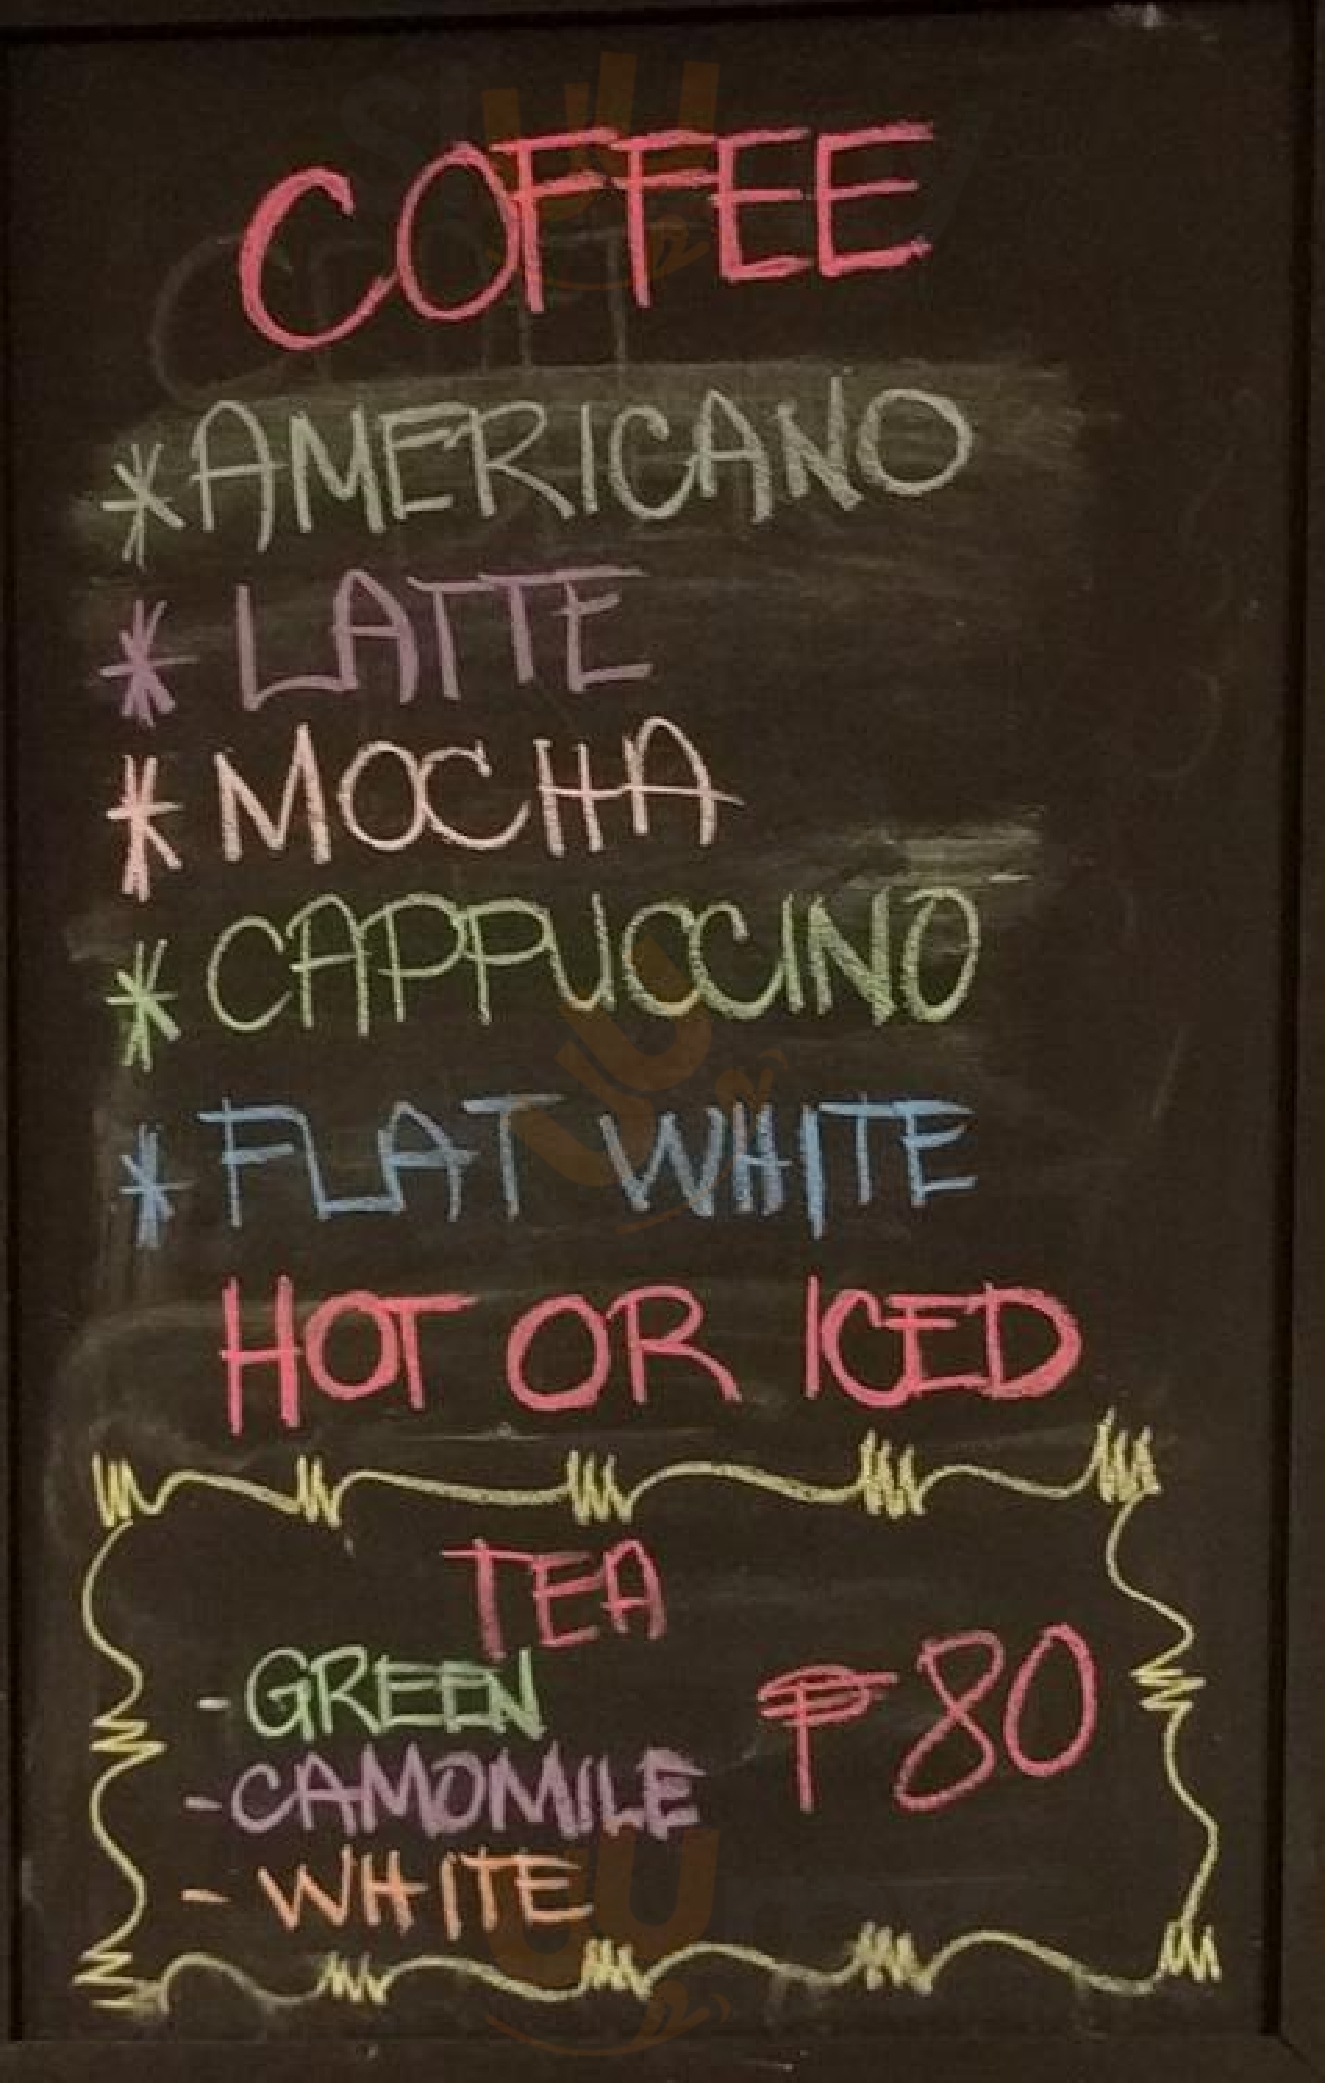 COFFEE
* AMERICANO
* LATTE
* MOCHA
* CAPPUCCINO
* FLAT WHITE
HOT OR ICED
TEA
- GREEN
- CAMOMILE
- WHITE
₱80